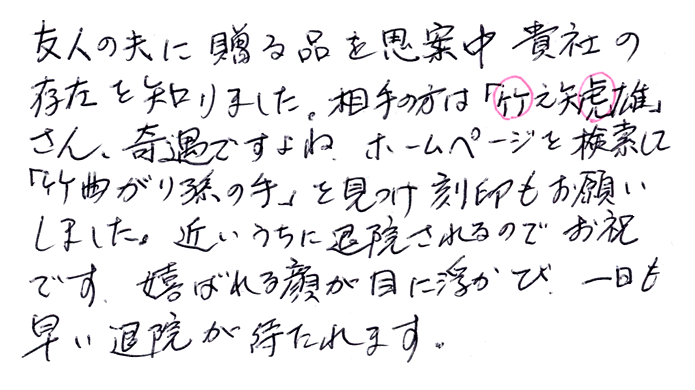 友人の夫に贈る品を思案中 貴社の
存在を知りました。相手の方は「竹元矢虎雄」
さん、奇遇ですよね ホームページを検索して
「竹曲がり孫の手」を見つけ刻印もお願い
しました。近いうちに退院されるのでお祝
です、嬉ばれる顔が目に浮かび、一日も
早い退院が待たれます。